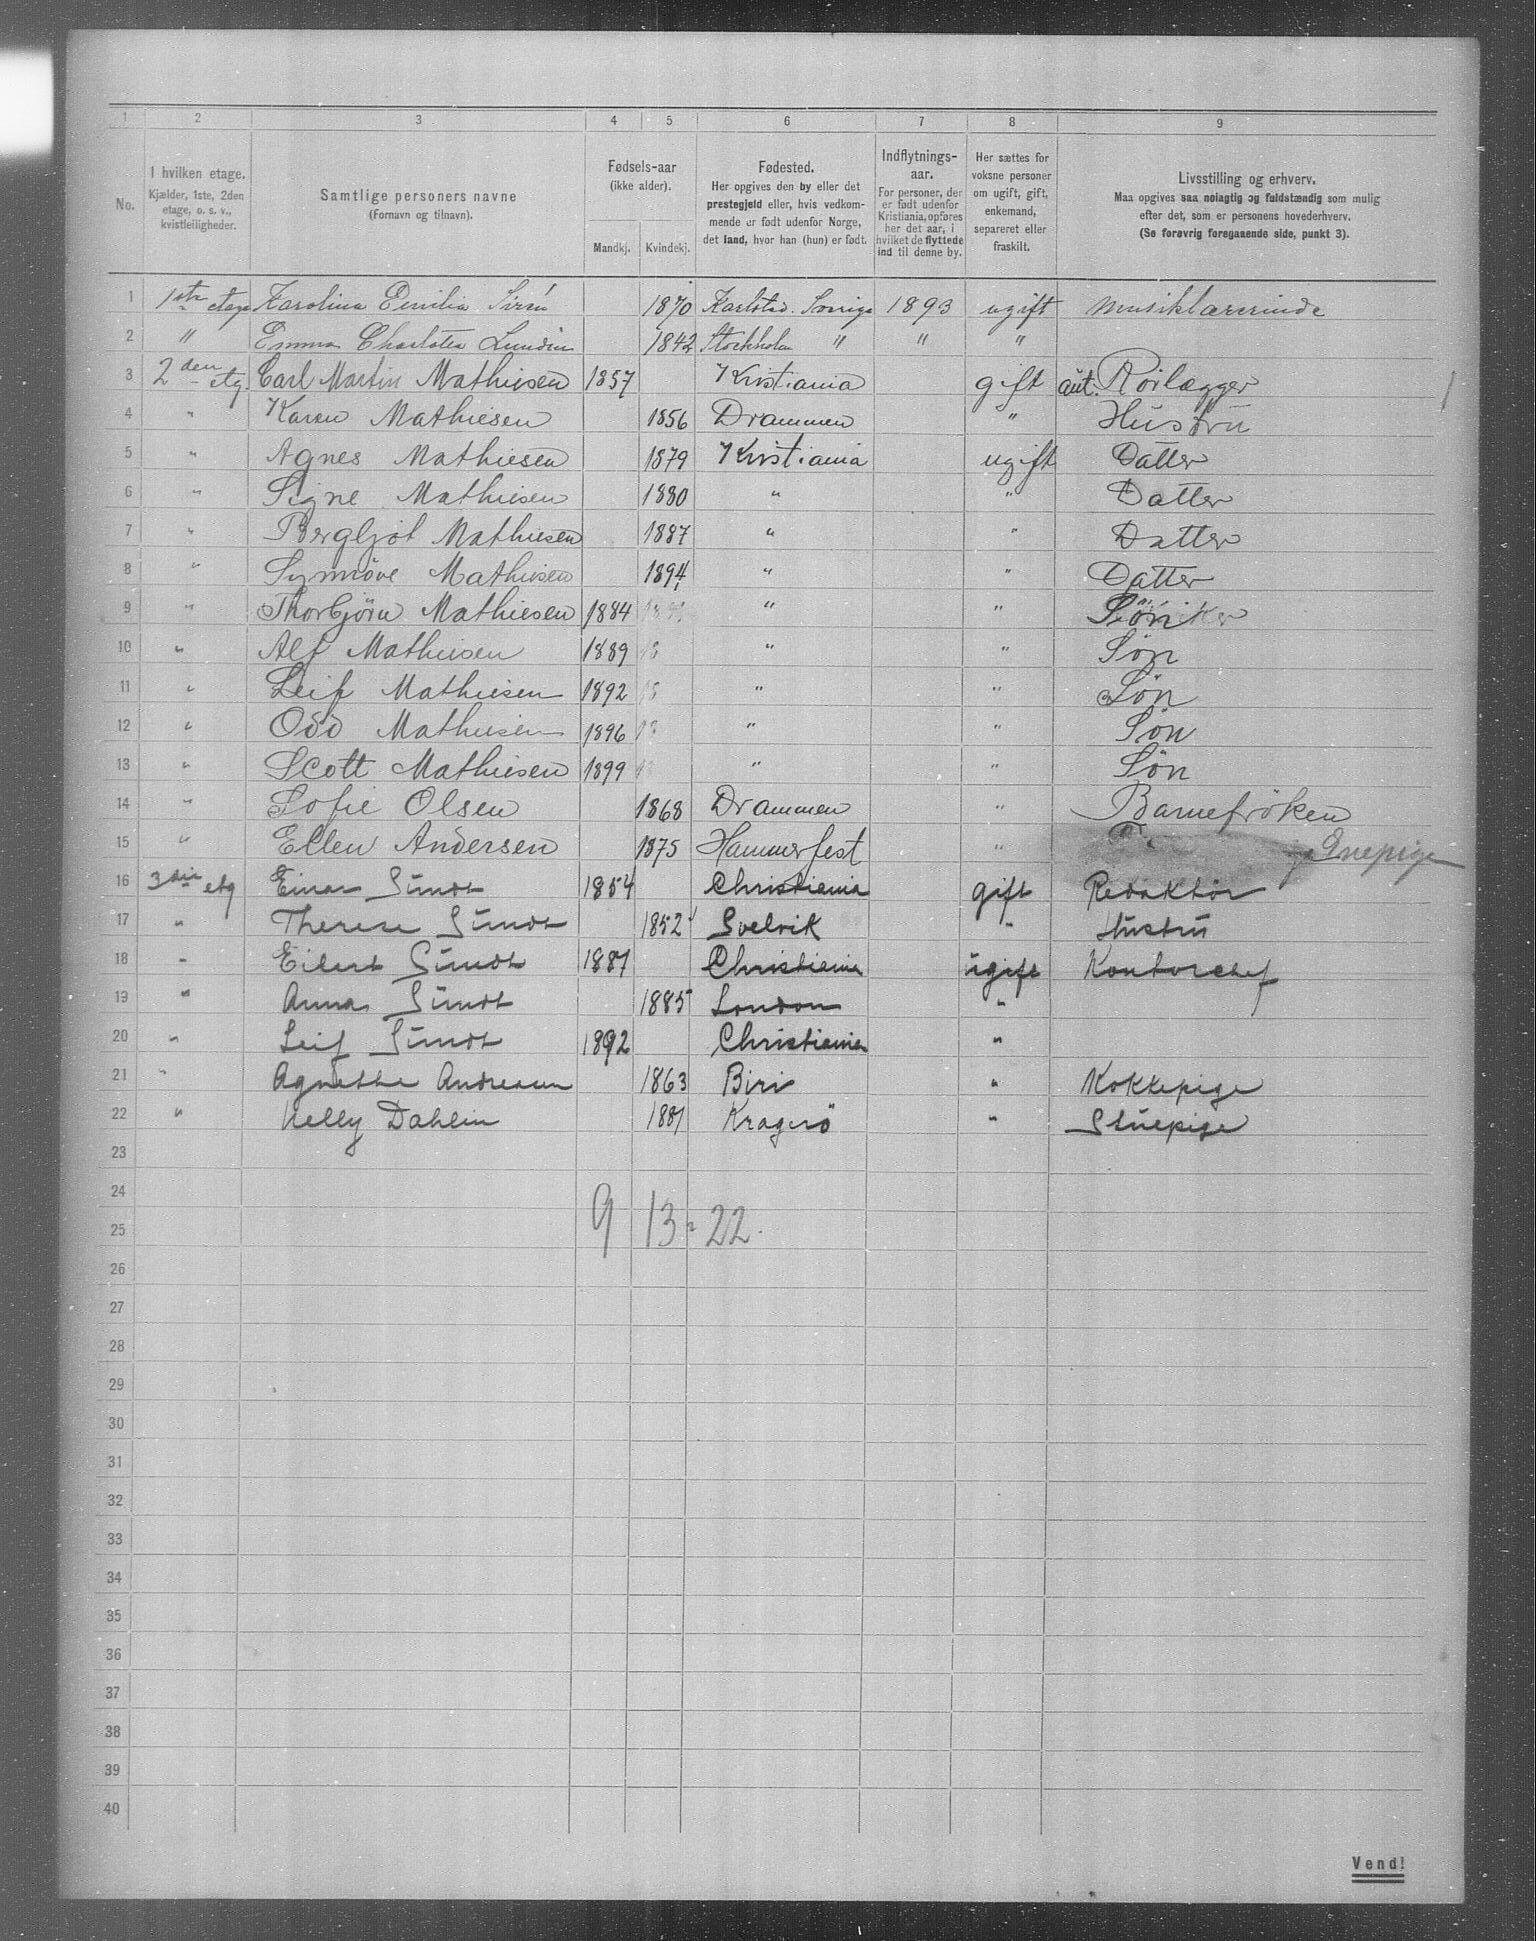 1 2 3 4 5 6 7 8 9
No. I hvilken etage. Kjælder, 1ste, 2den etage, o. s. v., kvistleiligheder. Samtlige personers navne (Fornavn og tilnavn). Fødsels-aar (ikke alder). Mandkj. Kvindekj. Fødested. Her opgives den by eller det prestegjeld eller, hvis vedkommende er født udenfor Norge, det land, hvor han (hun) er født. Indflytnings-aar. For personer, der er født udenfor Kristiania, opføres her det aar, i hvilket de flyttede ind til denne by. Her sættes for voksne personer om ugift, gift, enkemand, separeret eller fraskilt. Livsstilling og erhverv. Maa opgives saa nøiagtig og fuldstændig som mulig efter det, som er personens hovederhverv. (Se forøvrig foregaaende side, punkt 3).
1 1ste etage Karolina Emilia Sirén 1870 Karlstad. Sverige 1893 ugift Musiklærerinde
2 " Emma Charlotta Lundin 1842 Stockholm " " "
3 2den etg. Carl Martin Mathiesen 1857 Kristiania gift aut. Rørlægger
4 " Karen Mathiesen 1856 Drammen " Hustru
5 " Agnes Mathiesen 1879 Kristiania ugift Datter
6 " Signe Mathiesen 1880 " " Datter
7 " Bergljot Mathiesen 1887 " " Datter
8 " Synnöve Mathiesen 1894 " " Datter
9 " Thorbjörn Mathiesen 1884 " " Sön
10 " Alf Mathiesen 1889 " " Søn
11 " Leif Mathiesen 1892 " " Søn
12 " Odd Mathiesen 1896 " " Søn
13 " Scott Mathiesen 1899 " " Søn
14 " Sofie Olsen 1868 Drammen " Barnefrøken
15 " Ellen Andersen 1875 Hammerfest "
16 3die etg Einar Sundt 1854 Christiania gift Redaktør
17 " Therese Sundt 1852 Svelvik " Hustru
18 " Eilert Sundt 1887 Christiania ugift Kontorchef
19 " Anna Sundt 1885 London "
20 " Leif Sundt 1892 Christiania "
21 " Agnethe Andresen 1863 Biri " Kokkepige
22 " Nelly Dahlin 1881 Kragerö " Stuepige
23
24
25 9 13 = 22.
26
27
28
29
30
31
32
33
34
35
36
37
38
39
40
Vend!